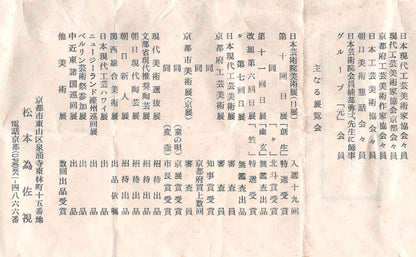 現代工芸美術家協会々員
現代工芸美術家協会京都会々員
京都府工芸美術作家協会々員
日本工芸美術協会々員
朝日美術懇話会々員
日本芸術院会員楠部弥弌先生に師事
グループ「元」会員
主なる展覧会
日本芸術院美術展(日展) 入選十九回
第十回日展「創生」 特選受賞
第十一回日展「幽玄」 北斗賞受賞
改組第六回日展「竺」 特選受賞
〃 第七回日展 無鑑査出品
日本現代工芸美術展 審査員
京都府工芸美術展 審査員
同 知事賞受賞
同 京都府買上数回
京都市美術展(京展) 審査員
同 (童の唄) 京展賞受賞
同 (変壺) 市長賞受賞
現代美術選抜展 招待出品
文部省現代推奨陶芸展 招待出品
朝日現代陶芸展 招待出品
朝日新人展 招待出品
関西総合美術展 出品依嘱
日本現代工芸ハワイ展 出品
ニュージーランド濠州巡回展 出品
ベルリン芸術祭参加展 出品
中近東諸国巡回展 出品
他美術展 数回出品受賞
京都市東山区泉涌寺東林町十五番地
松本為佐視
電話京都(〇七五)五六一-四八六六番